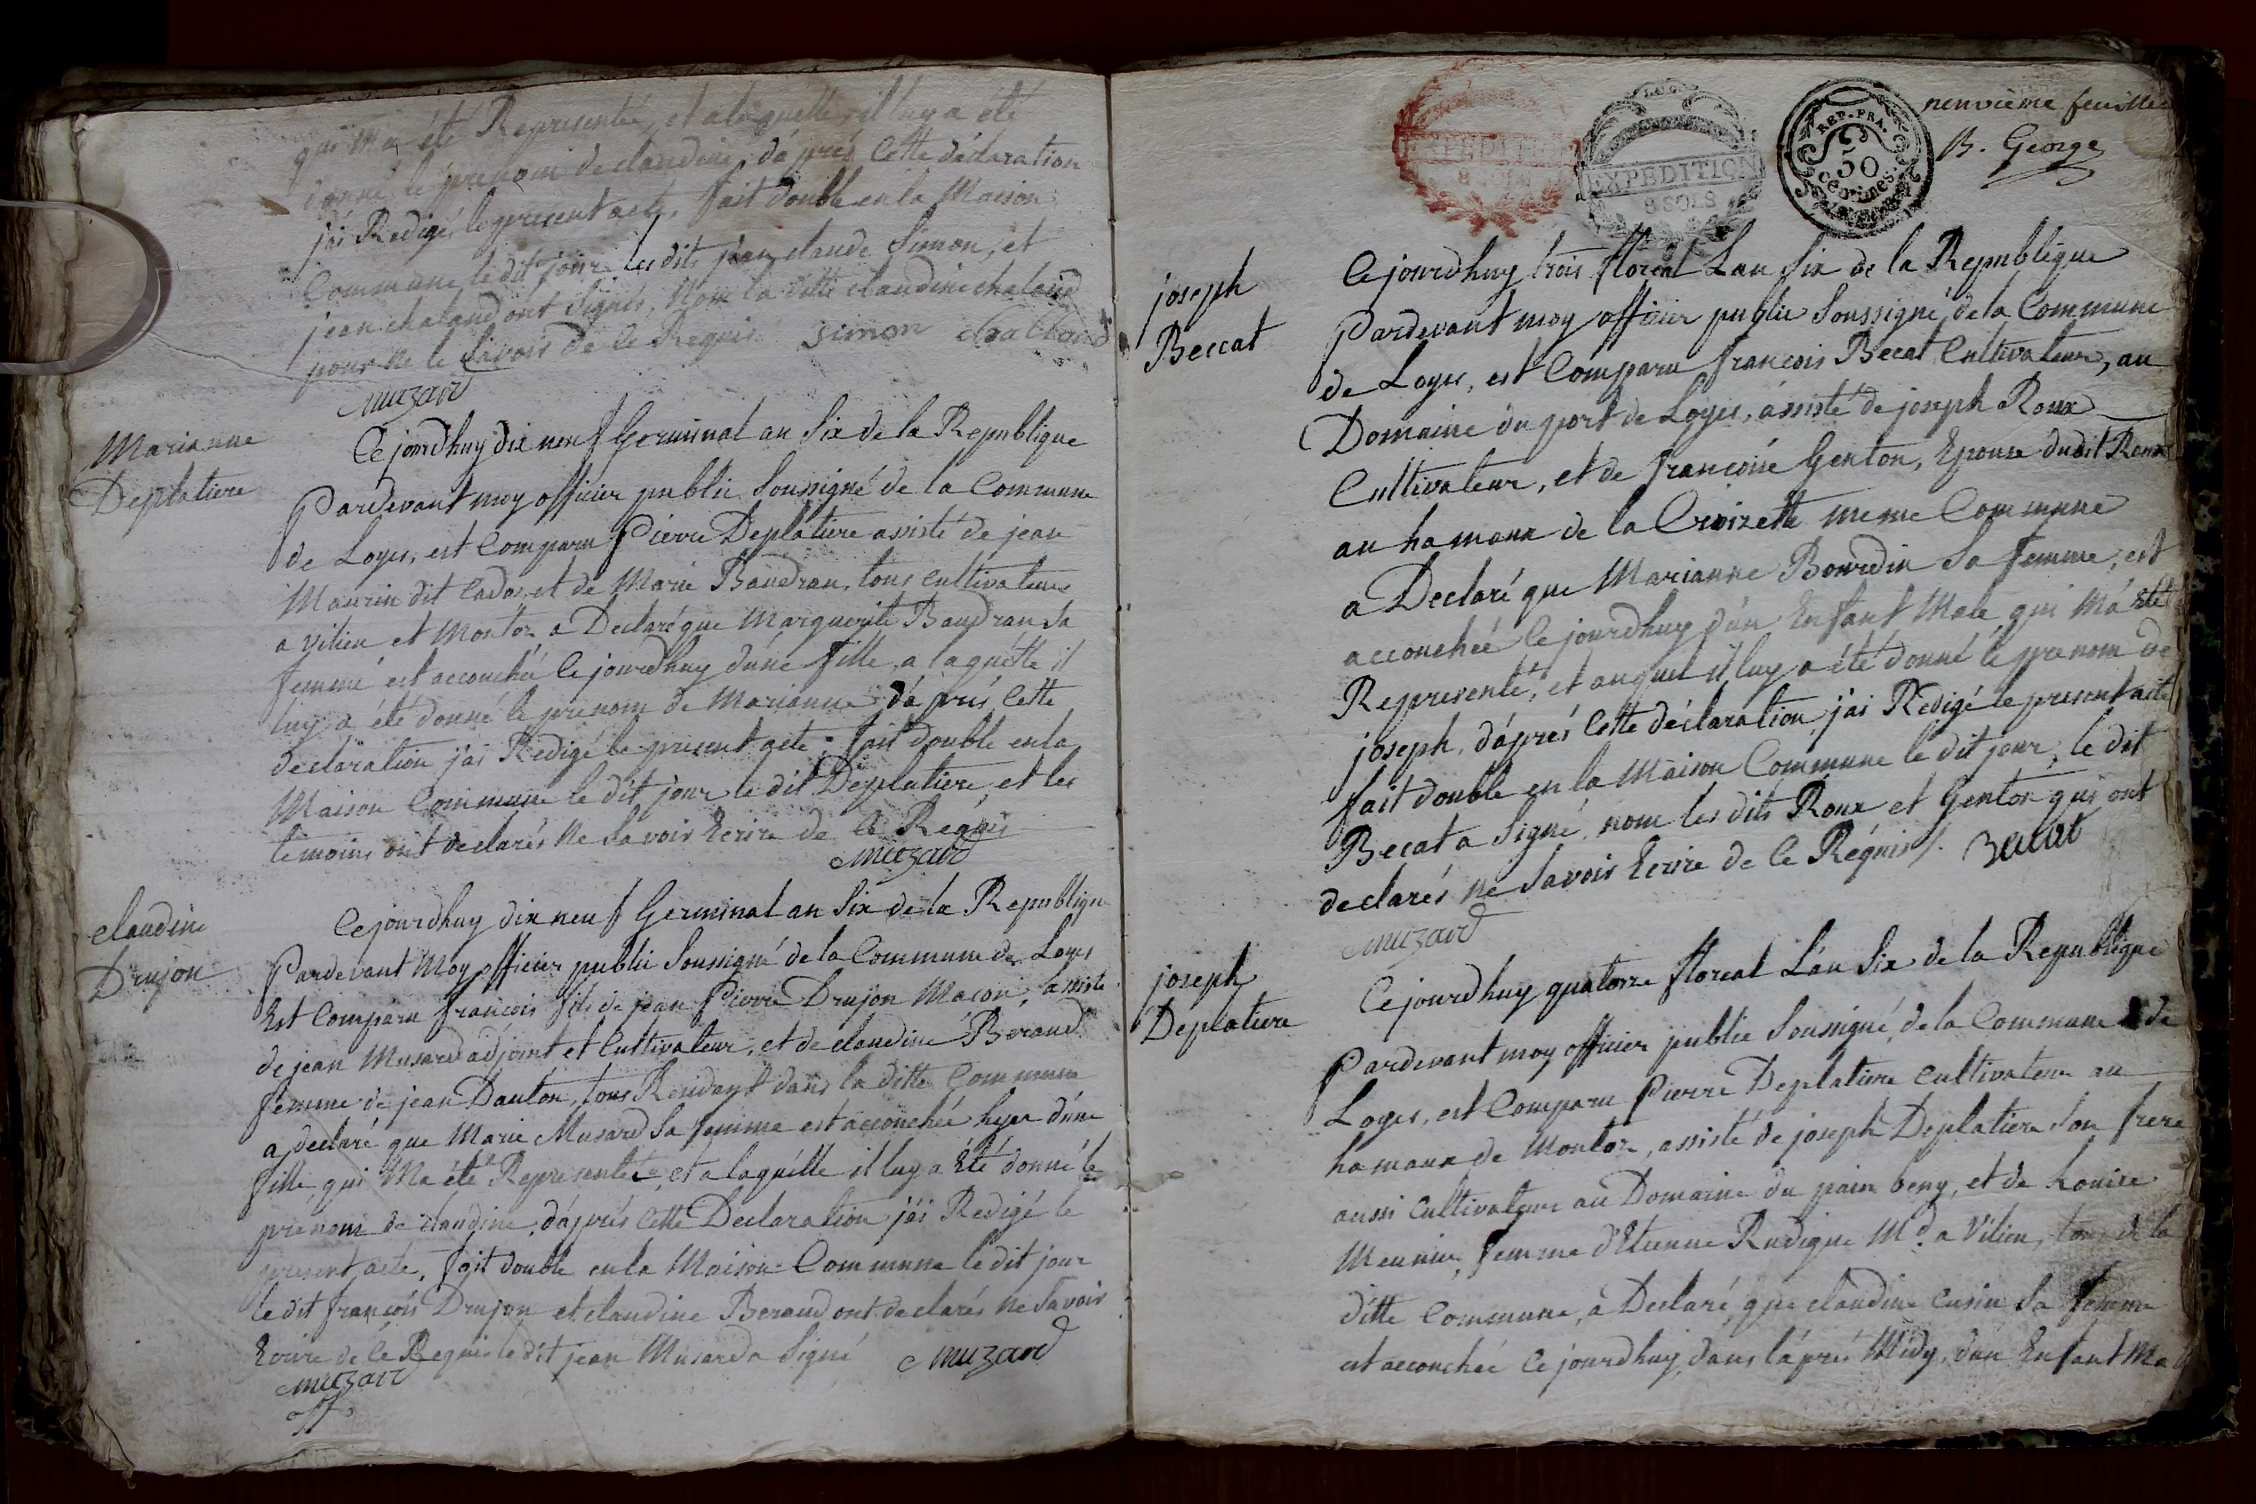 qui M'a été Representée, et a laquelle il luy a été
donné le prenom de claudine, dáprés Cette déclaration
j'ai Redigés le present acte, fait double en la Maison
Commune le dit jour les dits jean claude Simon, et
jean chaland ont Signés, Nom la ditte claudine chaland
pour ne le Savoir de Ce Requis. Simon Challand
Muzard
Marianne
Deplatiere
Cejourdhuy dix neuf Germinal an Six de la Republique
Pardevant moy officier public Soussigné de la Commune
de Loyes, est Comparu Pierre Deplatiere assisté de jean
Maurin dit Cadas, et de Marie Baudran, tous cultivateurs
a Vilieu et Montoz a Declaré que Marguerite Baudran Sa
femme est accouchée Cejourdhuy dúne fille, a laquelle il
luy a été donné le prenom de Marianne dáprés Cette
declaration j'ai Redigé le present acte; fait double en la
Maison Commune le dit jour le dit Deplatiere, et les
temoins ont declarés Ne Savoir Ecrire de Ce Requis
Muzard
claudine
Drujon
Cejourdhuy dix neuf Germinal an Six de la Republique
Pardevant Moy officier public Soussigné de la Commune de Loyes
Est Comparu françois fils de jean Pierre Drujon Macon, assisté
de jean Musard adjoint et Cultivateur, et de claudine Beraud
femme de jean Danton, tous Residant dans la ditte Commune
a declaré que Marie Musard Sa femme est accouchée hyer dúne
fille, qui M'a été Representée, et a laquelle il luy a Eté donné le
prenom de claudine, dáprés Cette Declaration j'ai Redigé le
present acte, fait double en la Maison Commune le dit jour
le dit françois Drujon et claudine Beraud ont declarés Ne Savoir
Ecrire de Ce Requis le dit jean Musard a Signé Muzard
Muzard
off
neuvième feuillet
B. George
EXPEDITION
8 SOLS
EXPEDITION
8 SOLS
REP. FRA.
50
Centimes.
joseph
Beccat
Cejourdhuy trois floreal L'an Six de la Republique
Pardevant moy officier public Soussigné, de la Commune
de Loyes, est Comparu françois Becat Cultivateur, au
Domaine du port de Loyes, assisté de joseph Roux
Cultivateur, et de françoise Genton, Epouse dudit Roux
au hamaux de la Croizette meme Commune
a Declaré que Marianne Bourdin Sa femme, est
accouchée Cejourdhuy d'ún Enfant Male qui M'á Eté
Representé, et auquel il luy a été donné le prenom de
joseph, dáprés Cette déclaration j'ai Rédigé le present acte
fait double en la Maison Commune le dit jour, le dit
Becat a Signé, nom les dits Roux et Genton qui ont
declarés ne Savoir Ecrire de Ce Réquis /. Becat
Muzard
joseph
Deplatiere
Cejourdhuy quatorze floreal L'an Six de la Republique
Pardevant moy officier public Soussigné, de la Commune de
Loyes, est Comparu Pierre Deplatiere Cultivateur au
hamaux de Montoz, assisté de joseph Deplatiere Son frere
aussi Cultivateur au Domaine du pain beny, et de Louise
Meunier, femme d'Etienne Rudigue Md. a Vilieu, tous de la
ditte Commune, a Declaré, que claudine Cusin Sa femme
est accouchée Cejourdhuy, dans láprés Midy, d'ún Enfant Mal